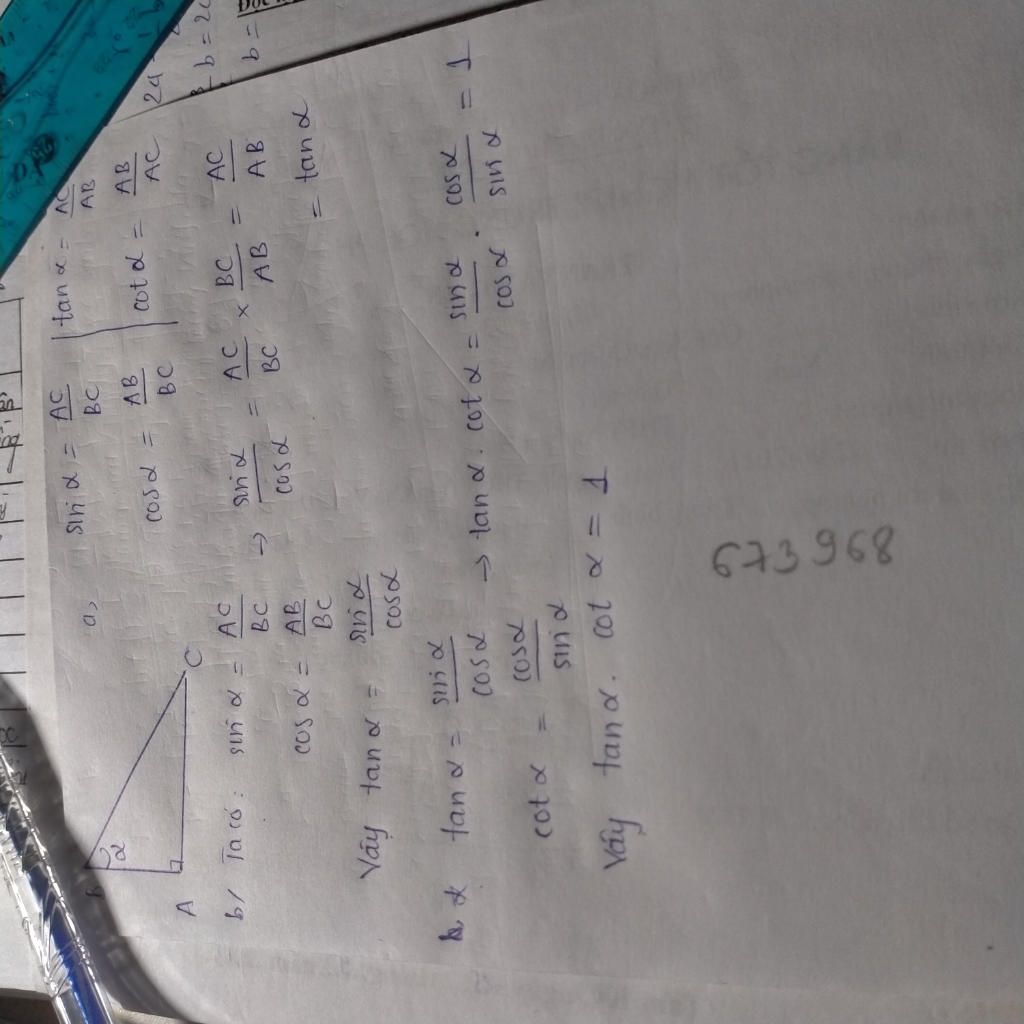 B
α
A
C
a, sin α = AC/BC | tan α = AC/AB
cos α = AB/BC | cot α = AB/AC
b/ Ta có: sin α = AC/BC → sin α/cos α = AC/BC × BC/AB = AC/AB
cos α = AB/BC = tan α
Vậy tan α = sin α/cos α
b, α tan α = sin α/cos α → tan α . cot α = sin α/cos α . cos α/sin α = 1
cot α = cos α/sin α
Vậy tan α . cot α = 1
673968